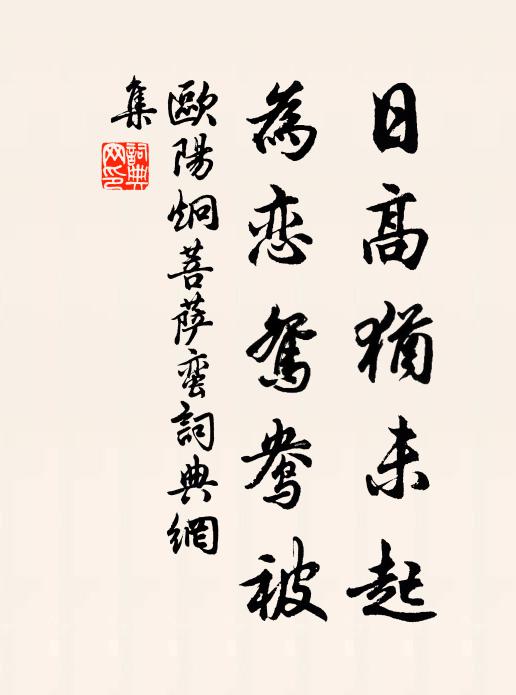 日高猶未起
為恋鴛鴦被
歐陽炯菩萨蛮詞典網
集
詞典网印